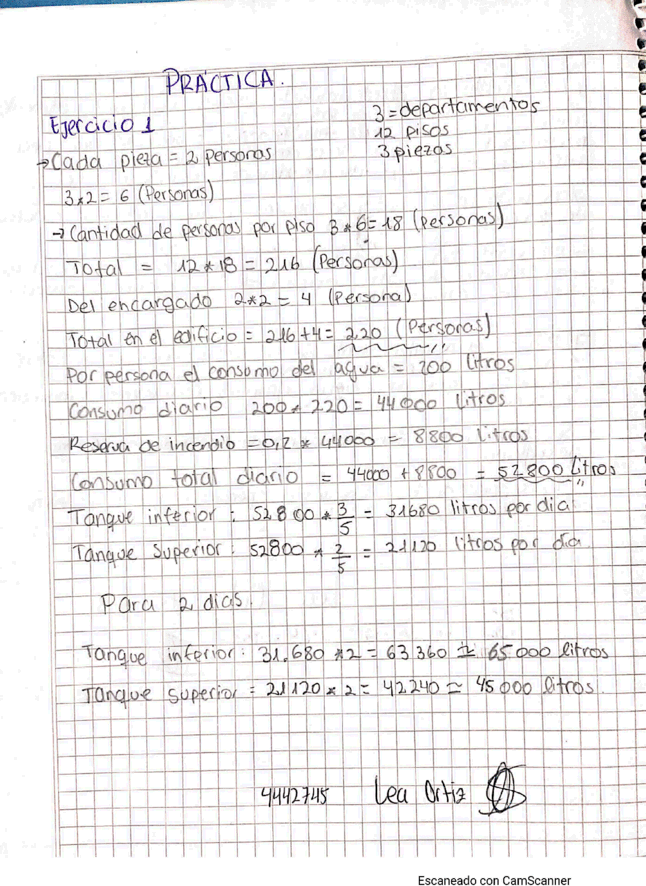 PRÁCTICA.
3 = departamentos
Ejercicio 1
12 pisos
→ Cada pieza = 2 personas
3 piezas
3*2 = 6 (Personas)
→ Cantidad de personas por piso 3*6 = 18 (personas)
Total = 12*18 = 216 (Personas)
Del encargado 2*2 = 4 (Persona)
Total en el edificio = 216+4 = 220 (Personas)
Por persona el consumo del agua = 200 litros
Consumo diario 200*220 = 44000 litros
Reserva de incendio = 0,2 * 44000 = 8800 litros
Consumo total diario = 44000 + 8800 = 52.800 litros
Tanque inferior : 52800 * 3/5 = 31680 litros por dia
Tanque Superior : 52800 * 2/5 = 21120 litros por dia
Para 2 dias.
Tanque inferior : 31.680 *2 = 63360 ≃ 65000 litros
Tanque superior = 21120 * 2 = 42240 ≃ 45000 litros.
4442745 Lea Ortiz
Escaneado con CamScanner